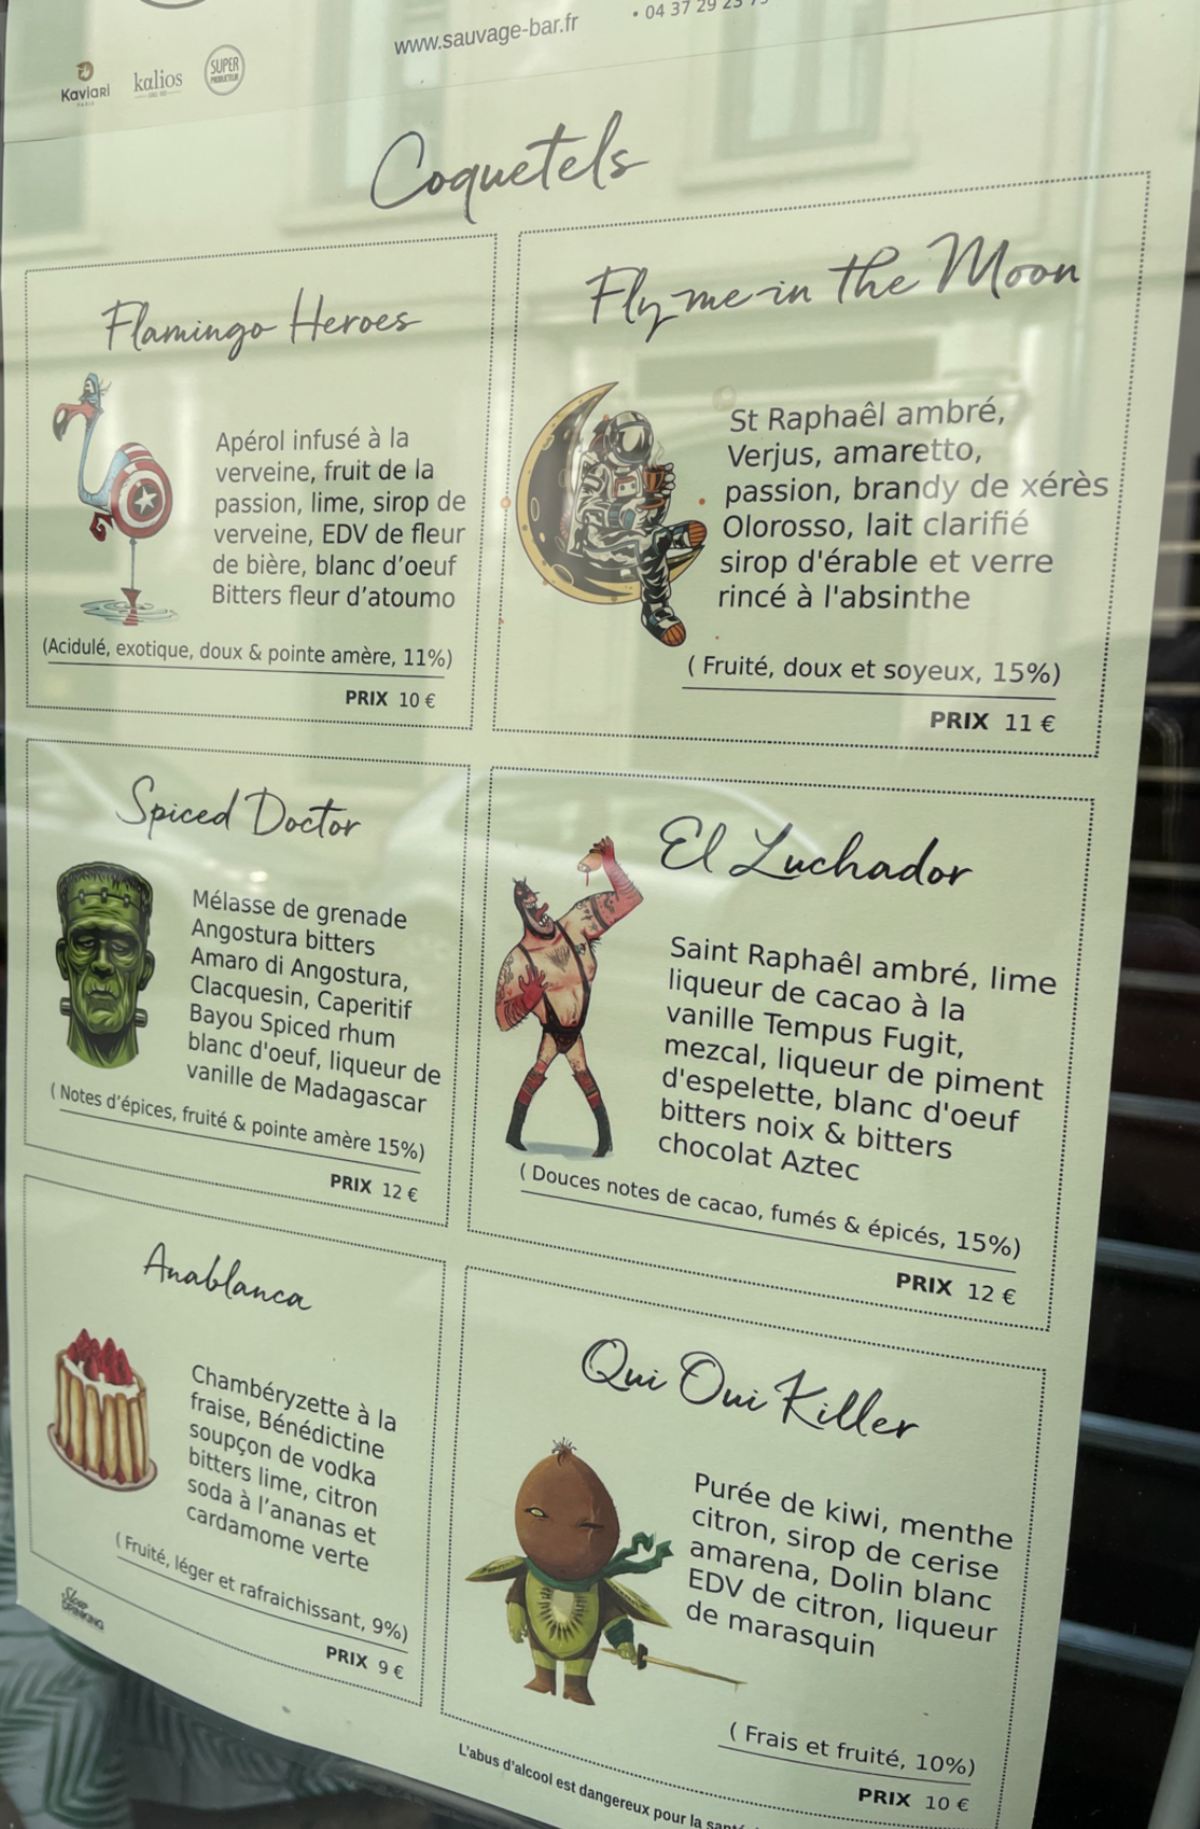 www.sauvage-bar.fr
• 04 37 29 23
Kaviari
PARIS
kalios
SUPER
PRODUCTEUR
Coquetels
Flamingo Heroes
Apérol infusé à la
verveine, fruit de la
passion, lime, sirop de
verveine, EDV de fleur
de bière, blanc d'oeuf
Bitters fleur d'atoumo
(Acidulé, exotique, doux & pointe amère, 11%)
PRIX 10 €
Fly me in the Moon
St Raphaêl ambré,
Verjus, amaretto,
passion, brandy de xérès
Olorosso, lait clarifié
sirop d'érable et verre
rincé à l'absinthe
( Fruité, doux et soyeux, 15%)
PRIX 11 €
Spiced Doctor
Mélasse de grenade
Angostura bitters
Amaro di Angostura,
Clacquesin, Caperitif
Bayou Spiced rhum
blanc d'oeuf, liqueur de
vanille de Madagascar
( Notes d'épices, fruité & pointe amère 15%)
PRIX 12 €
El Luchador
Saint Raphaêl ambré, lime
liqueur de cacao à la
vanille Tempus Fugit,
mezcal, liqueur de piment
d'espelette, blanc d'oeuf
bitters noix & bitters
chocolat Aztec
( Douces notes de cacao, fumés & épicés, 15%)
PRIX 12 €
Anablanca
Chambéryzette à la
fraise, Bénédictine
soupçon de vodka
bitters lime, citron
soda à l'ananas et
cardamome verte
( Fruité, léger et rafraichissant, 9%)
PRIX 9 €
Slow
DRINKING
Qui Oui Killer
Purée de kiwi, menthe
citron, sirop de cerise
amarena, Dolin blanc
EDV de citron, liqueur
de marasquin
( Frais et fruité, 10%)
PRIX 10 €
L'abus d'alcool est dangereux pour la santé